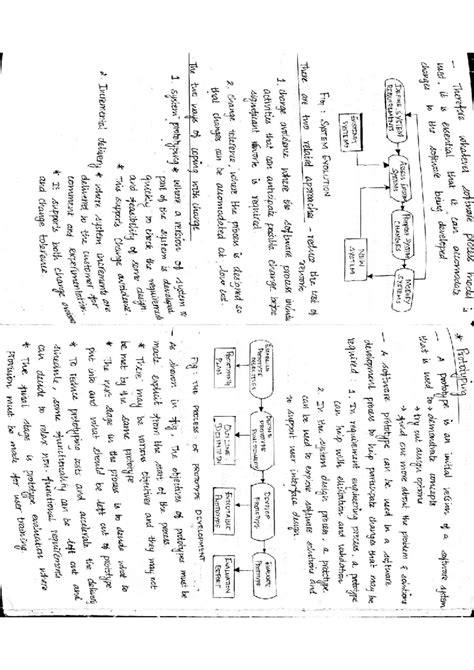 - Therefore whatever software process model is
used, it is essential that it can accomodate
changes to the software being developed
DEFINE SYSTEM
REQUIREMENTS
ASSESS EXISTING
SYSTEMS
PROPOSE SYSTEM
CHANGES
MODIFY
SYSTEMS
EXISTING
SYSTEM
NEW
SYSTEM
Fig: SYSTEM EVOLUTION
There are two related approaches - reduce the cost of
rework
1. change avoidance where the software process include
activities that can anticipate possible change before
significant rework is required
2. Change tolerance, where the process is designed so
that changes can be accomodated at low cost.
The two ways of coping with change
1. system prototyping * where a version of system or
part of the system is developed
quickly to check the requirement
and feasibility of some design
* This supports change avoidance.
2. Incremental delivery * where system increments are
delivered to the customer for
comment and experimentation
* It supports both change avoidance
and change tolerance
* Prototyping
- A prototype is an initial version of a software system
that is used to → demonstrate concepts
→ try out design options
→ find out more about the problem & solutions
- A software prototype can be used in a software
development process to help anticipate change that may be
required:
1. In requirement engineering process, a prototype
can help with elicitation and validation
2. In the system design process, a prototype
can be used to explore software solutions and
to support user interface design
ESTABLISH
PROTOTYPE
OBJECTIVES
DEFINE
PROTOTYPE
FUNCTIONALITY
DEVELOP
PROTOTYPE
EVALUATE
PROTOTYPE
PROTOTYPING
PLAN
OUTLINE
DEFINITION
EXECUTABLE
PROTOTYPE
EVALUATION
REPORT
Fig: THE PROCESS OF PROTOTYPE DEVELOPMENT
- As shown in fig The objectives of prototypes must be
made explicit from the start of the process
* There may be various objectives and they may not
be met by the same prototype
* The next stage in the process is to decide what to
put into and what should be left out of prototype
* To reduce prototyping costs and accelerate the delivery
schedule, some functionality can be left out and
can decide to relax non-functional requirements
* The final stage is prototype evaluation where
provision must be made for user training.